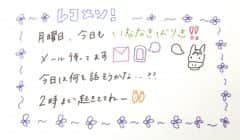 レコメン!
月曜日、今日もいななきばりき!!
メール待ってます
今日は何を話そうかな…!?
2時まで起きててねー!!